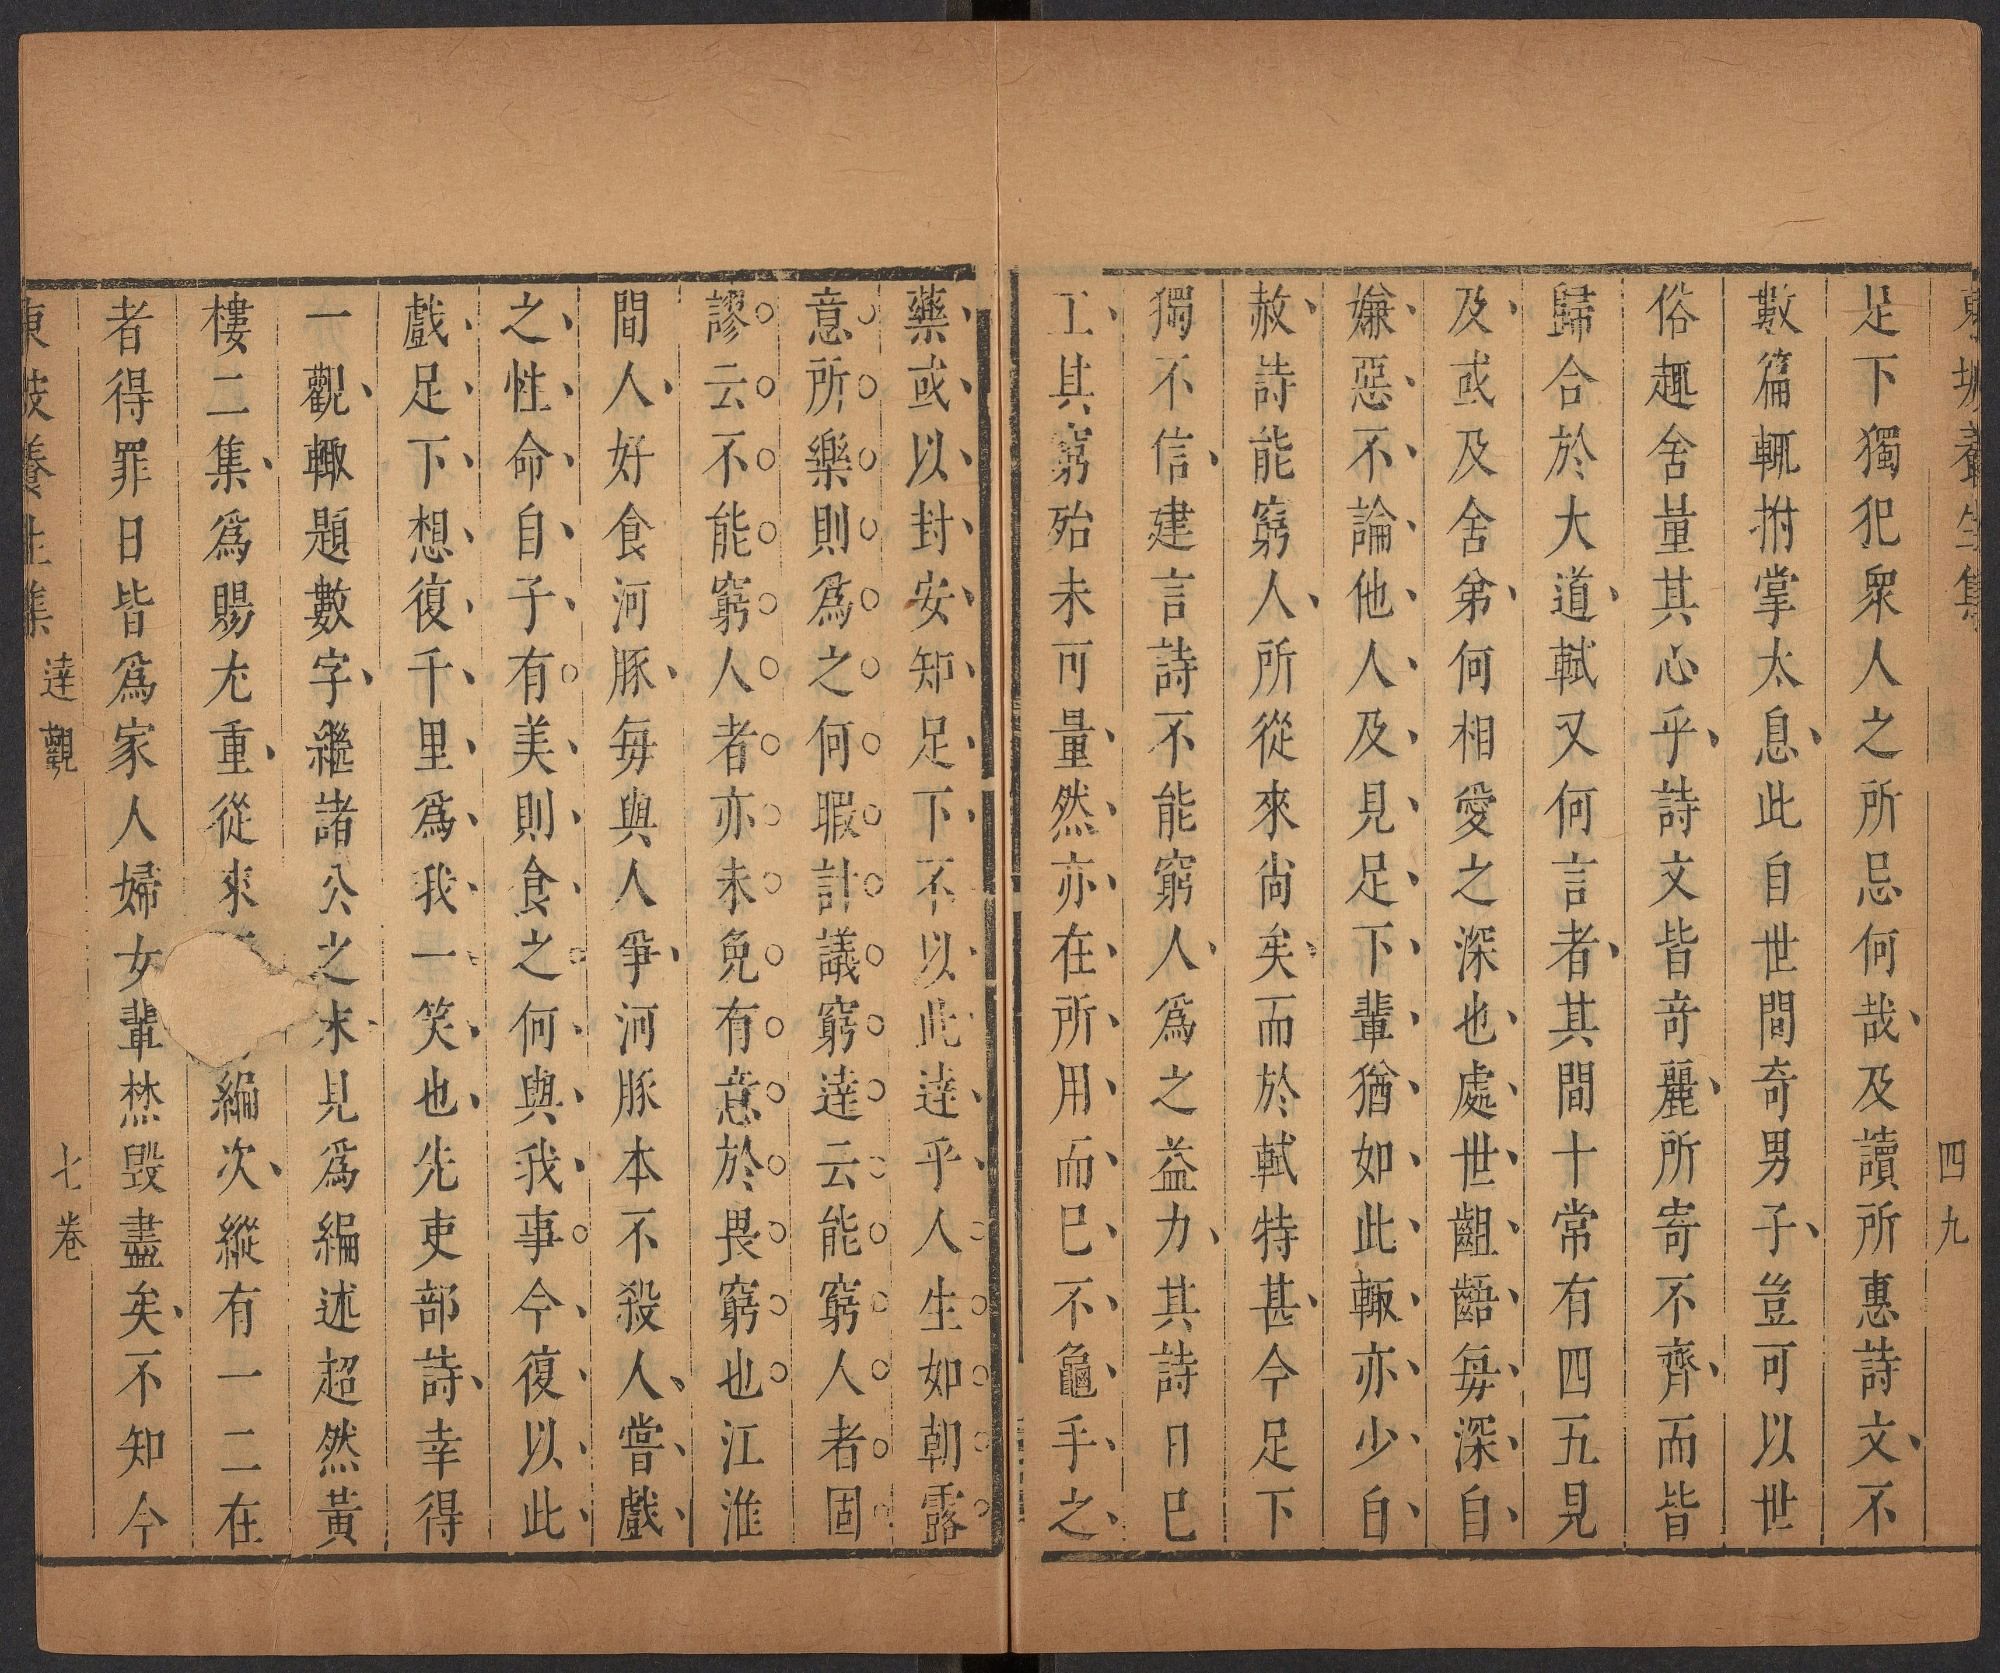 東坡養生集 四九
足下獨犯衆人之所忌何哉及讀所惠詩文不
數篇輒拊掌太息此自世間奇男子豈可以世
俗趣舍量其心乎詩文皆竒麗所寄不齊而皆
歸合於大道軾又何言者其間十常有四五見
及或及舍弟何相愛之深也處世齟齬每深自
嫌惡不論他人及見足下輩猶如此輙亦少自
赦詩能窮人所從來尚矣而於軾特甚今足下
獨不信建言詩不能窮人爲之益力其詩日已
工其窮殆未可量然亦在所用而已不龜手之
藥或以封安知足下不以此達乎人生如朝露
意所樂則爲之何暇計議窮達云能窮人者固
謬云不能窮人者亦未免有意於畏窮也江淮
間人好食河豚每與人爭河豚本不殺人嘗戲
之性命自子有美則食之何與我事今復以此
戲足下想復千里爲我一笑也先吏部詩幸得
一觀輙題數字繼諸公之末見爲編述超然黃
樓二集爲賜尤重從來編次縱有一二在
者得罪日皆爲家人婦女輩焚毀盡矣不知今
東坡養生集 達觀 七卷